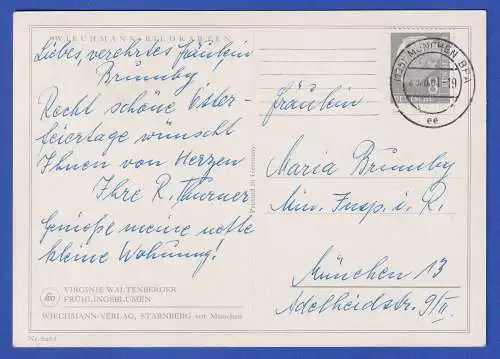 WIECHMANN-BILDKARTEN
Liebes, verehrtes Fräulein
Brumby
Recht schöne Oster-
feiertage wünscht
Ihnen von Herzen
Ihre R. Thurner
Genieße meine
kleine Wohnung!
VIRGINIE WALTENBERGER
FRÜHLINGSBLUMEN
WIECHMANN-VERLAG, STARNBERG vor München
Printed in Germany
MÜNCHEN BPA
ee
Fräulein
Maria Brumby
Min. Insp. i. R.
München 13
Adelheidstr. 9/II